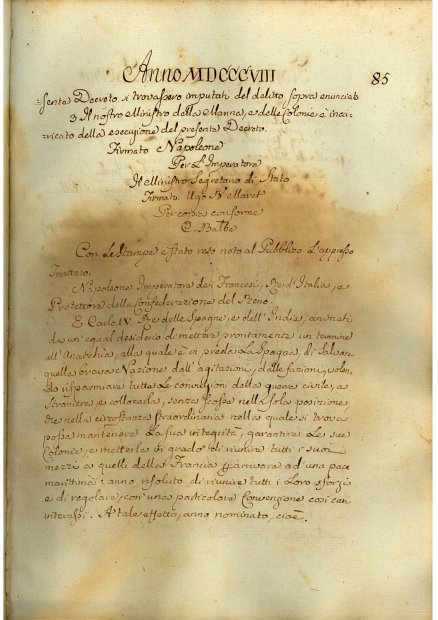 Anno MDCCCVIII 85
senta Decreto si trovassero imputati del delitto sopra enunciato
3. Il nostro Ministro della Marina, e delle Colonie è inca-
ricato della esecuzione del presente Decreto.
Firmato Napoleone
Per L'Imperatore
Il Ministro Segretario di Stato
Firmato Ugo B. Maret
Per copia conforme
C. Balbe
Con le Stampe è stato reso noto al Pubblico L'appresso
Trattato.
Napoleone Imperatore dei Francesi, Re d'Italia, e
Protettore della Confederazione del Reno.
E Carlo IV. Re delle Spagne, e dell'Indie, animati
da un'equal desiderio di mettere prontamente un termine
all'Anarchia, alla quale è in preda La Spagna, di Salvare
quella brava Nazione dall'agitazioni, dalle fazioni, volendo
risparmiare tutte Le convulsioni della guerra civile, e
straniera e collocarla, senza scosse nell'Sola posizione
che nella circostanza straordinaria nella quale si trova
possa mantenere La sua integrità, garantire Le sue
Colonie, e metterla in grado di riunire tutti i suoi
mezzi a quelli della Francia per arrivare ad una pace
marittima: anno risoluto di riunire tutti i Loro sforzi
e di regolare, con una particolare Convenzione così
interessi. A tale effetto, anno nominato, cioè.